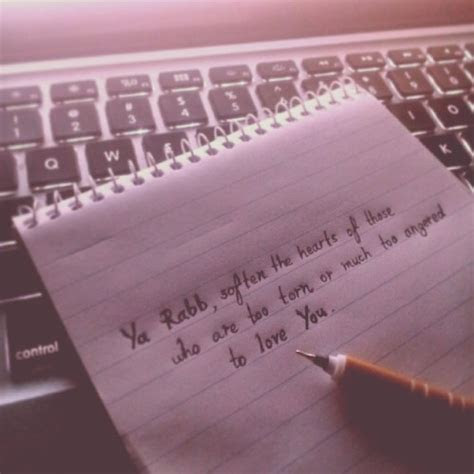 Q W
control
K
Ya Rabb, soften the hearts of those
who are too torn or much too angered
to love You.